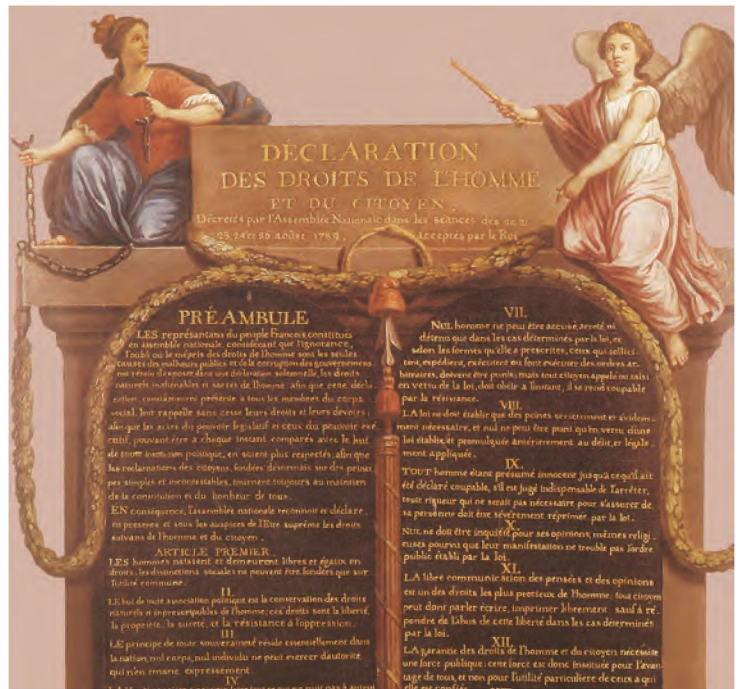 DÉCLARATION
DES DROITS DE L'HOMME
ET DU CITOYEN,
Décretés par l'Assemblée Nationale dans les séances des 20, 21
23, 24 et 26 août 1789, acceptés par le Roi
PRÉAMBULE
LES représantans du peuple François constitués
en assemblée nationale, considérant que l'ignorance,
l'oubli ou le mépris des droits de l'homme sont les seules
causes des malheurs publics et de la corruption des gouvernemens
ont résolu d'exposer dans une déclaration solemnelle, les droits
naturels inaliénables et sacrés de l'homme; afin que cette décla-
ration, constamment présente a tous les membres du corps
social, leur rappelle sans cesse leurs droits et leurs devoirs;
afin que les actes du pouvoir législatif et ceux du pouvoir exé-
cutif, pouvant être a chaque instant comparés avec le but
de toute institution politique, en soient plus respectés; afin que
les reclamations des citoyens, fondées désormais sur des princi-
pes simples et incontestables, tournent toujours au maintien
de la constitution et du bonheur de tous.
EN conséquence, l'assemblée nationale reconnoit et déclare
en presence et sous les auspices de l'Etre suprême les droits
suivans de l'homme et du citoyen.
ARTICLE PREMIER.
LES hommes naissent et demeurent libres et égaux en
droits, les distinctions sociales ne peuvent être fondées que sur
l'utilité commune.
II.
LE but de toute association politique est la conservation des droits
naturels et inprescriptibles de l'homme; ces droits sont la liberté,
la propriété, la sureté, et la résistance à l'oppression.
III
LE principe de toute souveraineté réside essentiellement dans
la nation, nul corps, nul individu ne peut exercer d'autorité
qui n'en émane expressement.
IV
VII.
NUL homme ne peut être accusé, arreté, ni
détenu que dans les cas déterminés par la loi, et
selon les formes qu'elle a prescrites, ceux qui sollici-
tent, expédient, exécutent ou font exécuter des ordres ar-
bitraires, doivent être punis; mais tout citoyen appelé ou saisi
en vertu de la loi, doit obéir a l'instant, il se rend coupable
par la résistance.
VIII.
LA loi ne doit établir que des peines strictement et évidem-
ment nécessaire, et nul ne peut être puni qu'en vertu d'une
loi établie et promulguée antérierement au délit, et légale-
ment appliquée.
IX.
TOUT homme étant présumé innocent jusqu'a ce qu'il ait
été déclaré coupable, s'il est jugé indispensable de l'arrêter,
toute rigueur qui ne serait pas nécessaire pour s'assurer de
sa personne doit être sévèrement réprimée par la loi.
X.
NUL ne doit être inquiété pour ses opinions, mêmes religi-
euses pourvu que leur manifestation ne trouble pas l'ordre
public établi par la loi.
XI.
LA libre communication des pensées et des opinions
est un des droits les plus precieux de l'homme; tout citoyen
peut donc parler écrire, imprimer librement sauf à ré-
pondre de l'abus de cette liberté dans les cas déterminés
par la loi.
XII.
LA garantie des droits de l'homme et du citoyen nécessite
une force publique; cette force est donc instituée pour l'avan-
tage de tous, et non pour l'utilité particuliere de ceux a qui
elle est confiée